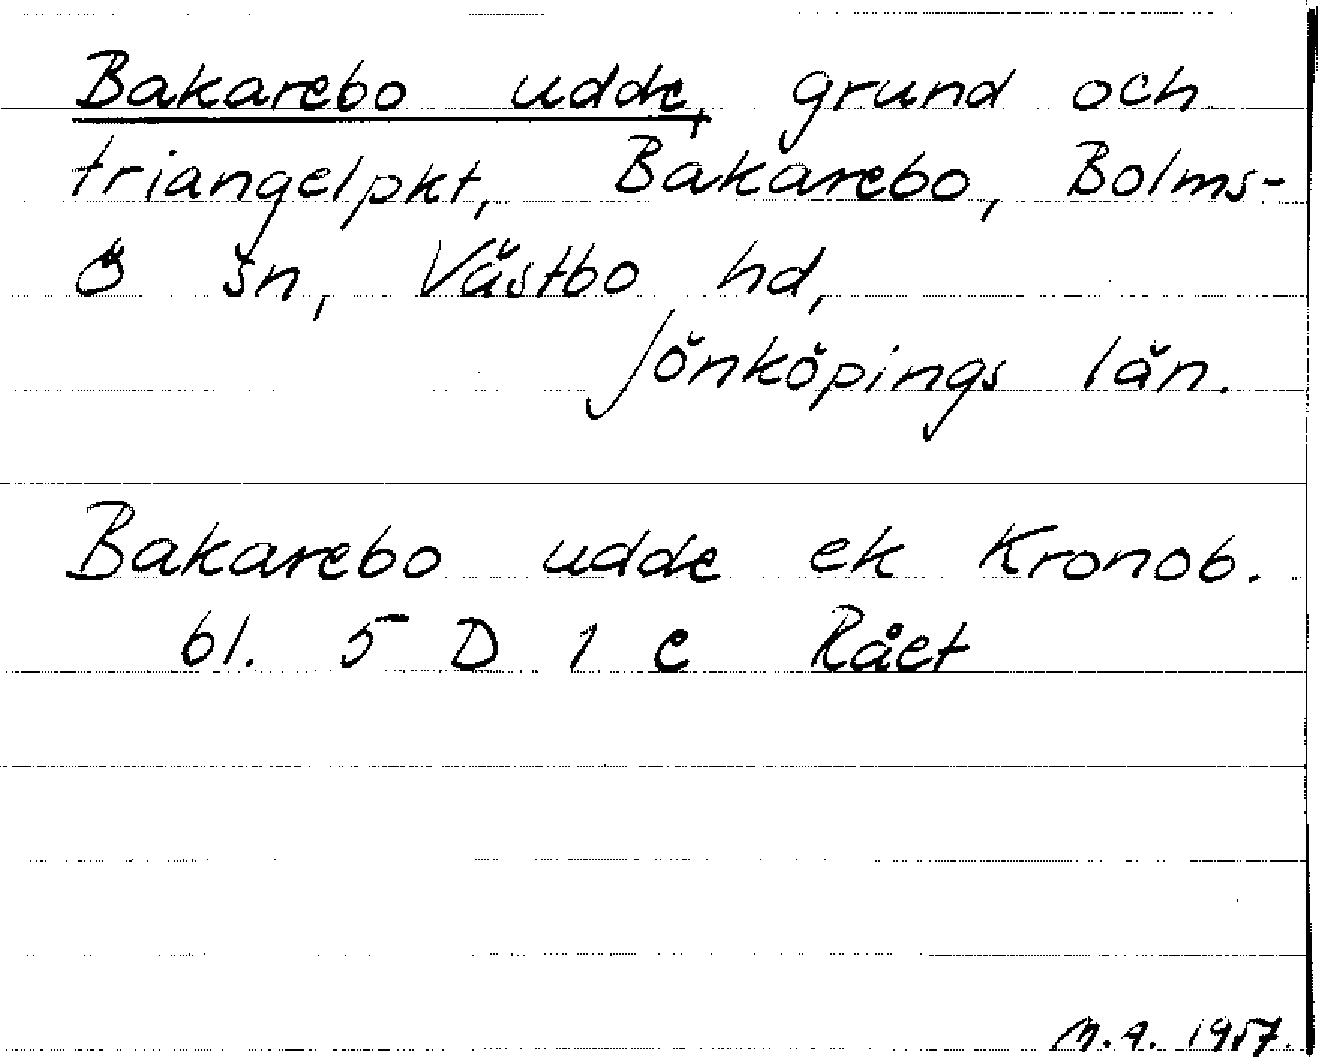 Bakarebo udde, grund och
triangelpkt, Bakarebo, Bolms-
ö sn, Västbo hd,
Jönköpings län.
Bakarebo udde ek Kronob.
bl. 5 D 1 e Rået
M.A. 1957.